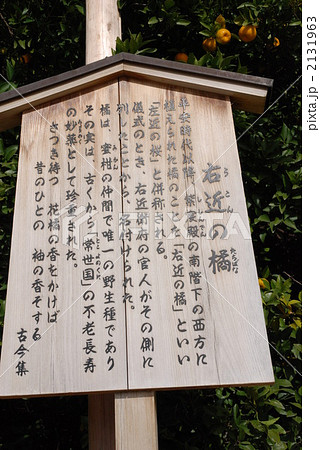 右近の橘
うこん
たちばな
平安時代以降、紫宸殿の南階下の西方に
植えられた橘のことで「右近の橘」といい
「左近の桜」と併称される。
儀式のとき、右近衛府の官人がその側に
列したことから、名付けられた。
橘は、蜜柑の仲間で唯一の野生種であり
みかん
その実は、古くから「常世国」の不老長寿
の妙薬として珍重された。
さつき待つ 花橘の香をかげば
昔のひとの 袖の香ぞする
古今集
PIXTA
pixta.jp - 2131963